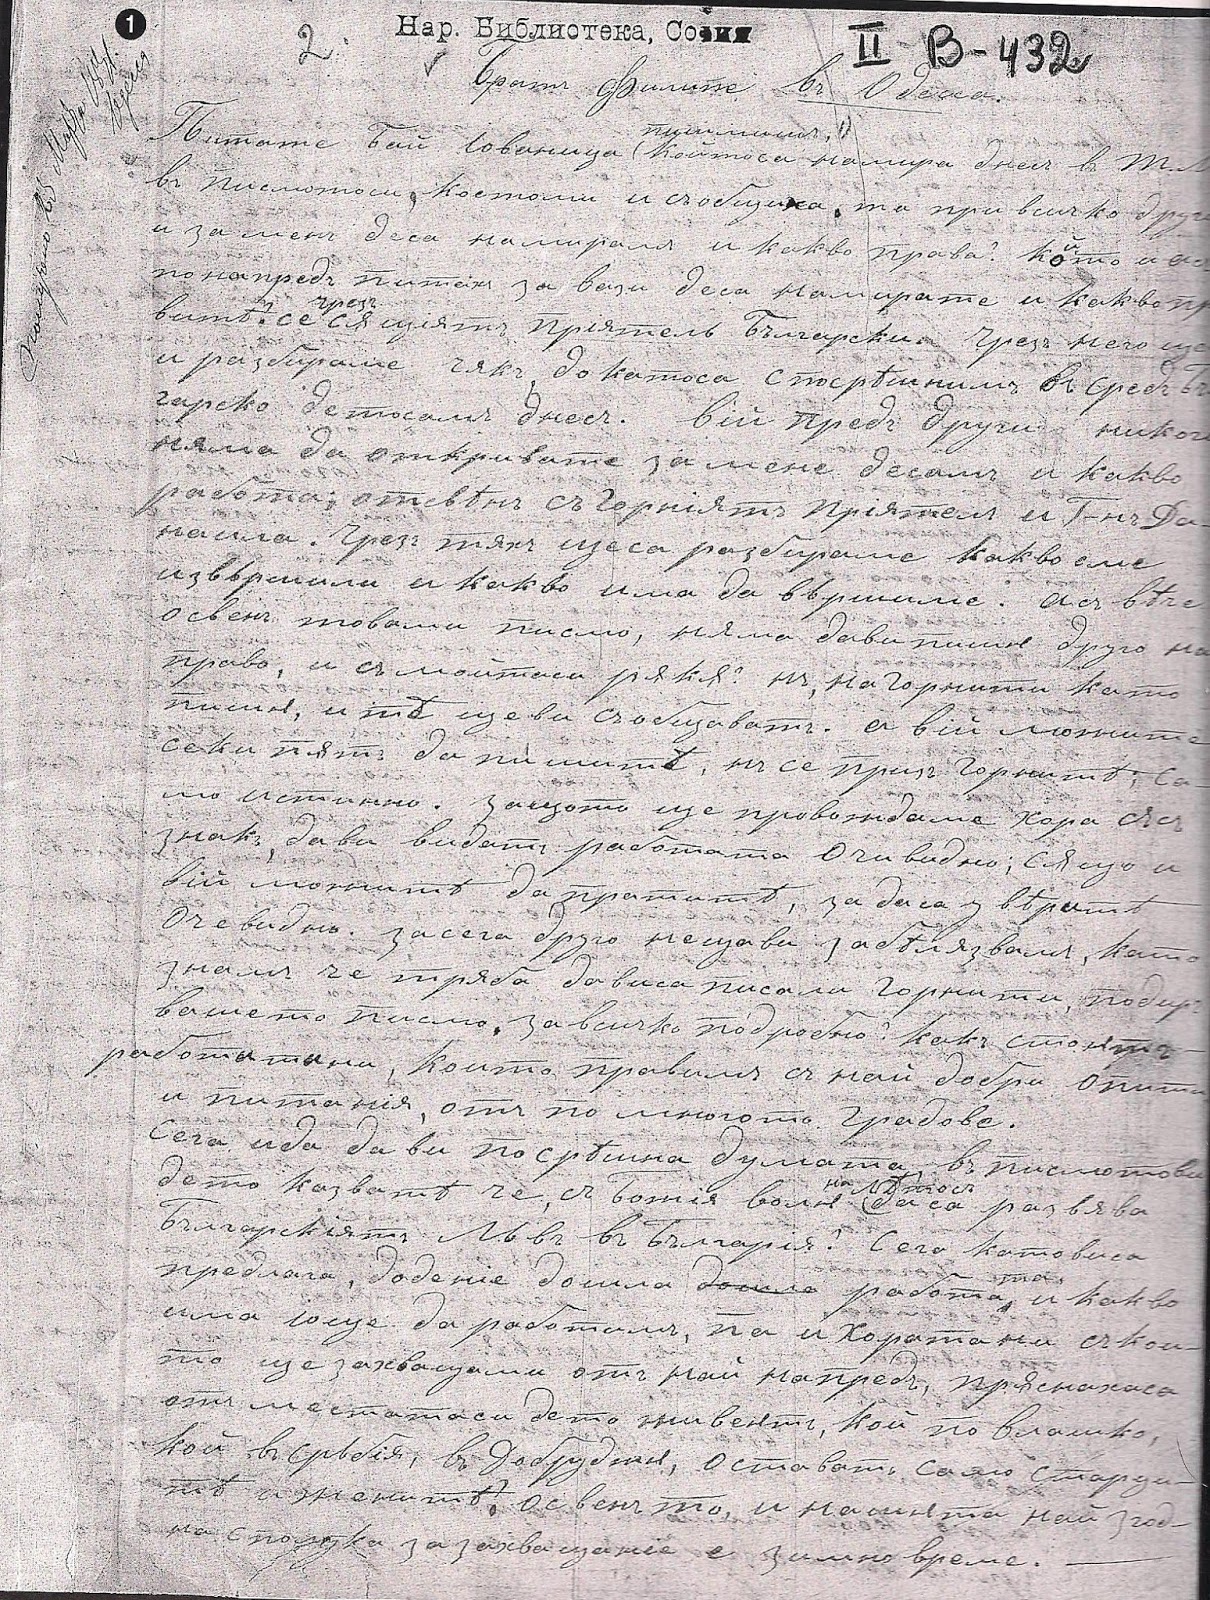 1
2.
Нар. Библиотека, София
II В-432
Братъ Филипе въ Одеса.
писмилъ, 1)
Питате бай Iованица (койтоса намира днесъ в Т.М
въ писмотоси, костоми и съобщиха, та при всичко друг
и заменъ деса намирамъ и какво права? който и ас
понапредъ питахъ за вази деса намирате и какво пр
витѣ? се чрезъ сящиятъ прiятель Български. Чрезъ него ще
и разбираме чякъ докатоса споср​ѣшнимъ въ средъ Бъ
гарско детосамъ днесъ. Вiй предъ други никог
няма да откривате за мене десамъ и какво
работа; отсвѣнъ съ горнiятъ прiятелъ и Г-нъ Да-
наила. Чрезъ тяхъ щеса разбираме какво сме
извършили и какво има да вършиме. Асъ вѣче
освенъ товами писмо, няма давипиша друго на
право, и съ мойтаси ряка? нъ, на горнити като
пиша, и тѣ щеви съобщаватъ. а вiй можите
секи пятъ да пишитѣ, нъ се презъ горнитѣ; са-
мо истинно. Защото ще провождаме хора съсъ
знакъ, дави видатъ работата очевидно; сящо и
вiй можитѣ да пратитѣ, за даса увѣрятъ
очевидно. засега друго нещави забѣлязвамъ, като
знамъ че тряба дависа писали горнити, подирь
вашето писмо, за всичко подробно? какъ стоятъ
работитени, които правимъ съ най добри опити
и питанiя, отъ по многото градове.
Сега ида да ви посрѣшна думата, въ писмотови
дето казватѣ че, съ Божiя воля на лѣтосъ даса развява
Българскiятъ Лъвъ въ Българiя? Сега катовиса
предлага, додение дошла работата, и какво
има юще да работимъ, па и Хоратани съ кои-
то ще захващами отъ най напредъ, пряснахаса
отъ местатаси дето живеятъ, кой по влашко,
кой въ Србiя, въ Добруджя, оставатъ само старци-
тѣ и женитѣ? освенъ то, и нашята най згод-
на сполука за захващанiе е зимно време. —